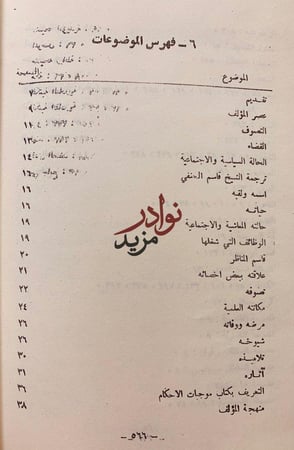 ٦ - فهرس الموضوعات
الموضوع الصفحة
تقديم
عصر المؤلف
التصوف ١١
القضاء ١٣
الحالة السياسية والاجتماعية ١٤
ترجمة الشيخ قاسم الحنفي ١٦
اسمه ولقبه ١٦
حياته ١٧
حالته المعاشية والاجتماعية ١٩
الوظائف التي شغلها ١٩
قاسم المناظر ٢٠
علاقته ببعض اخصائه ٢١
تصوفه ٢٢
مكانته العلمية ٢٤
مرضه ووفاته ٢٤
شيوخه ٢٦
تلاميذه ٣٠
آثاره ٣١
التعريف بكتاب موجبات الاحكام ٣٦
منهجية المؤلف ٣٨
نوادر
مزيد
-٥٦٦-